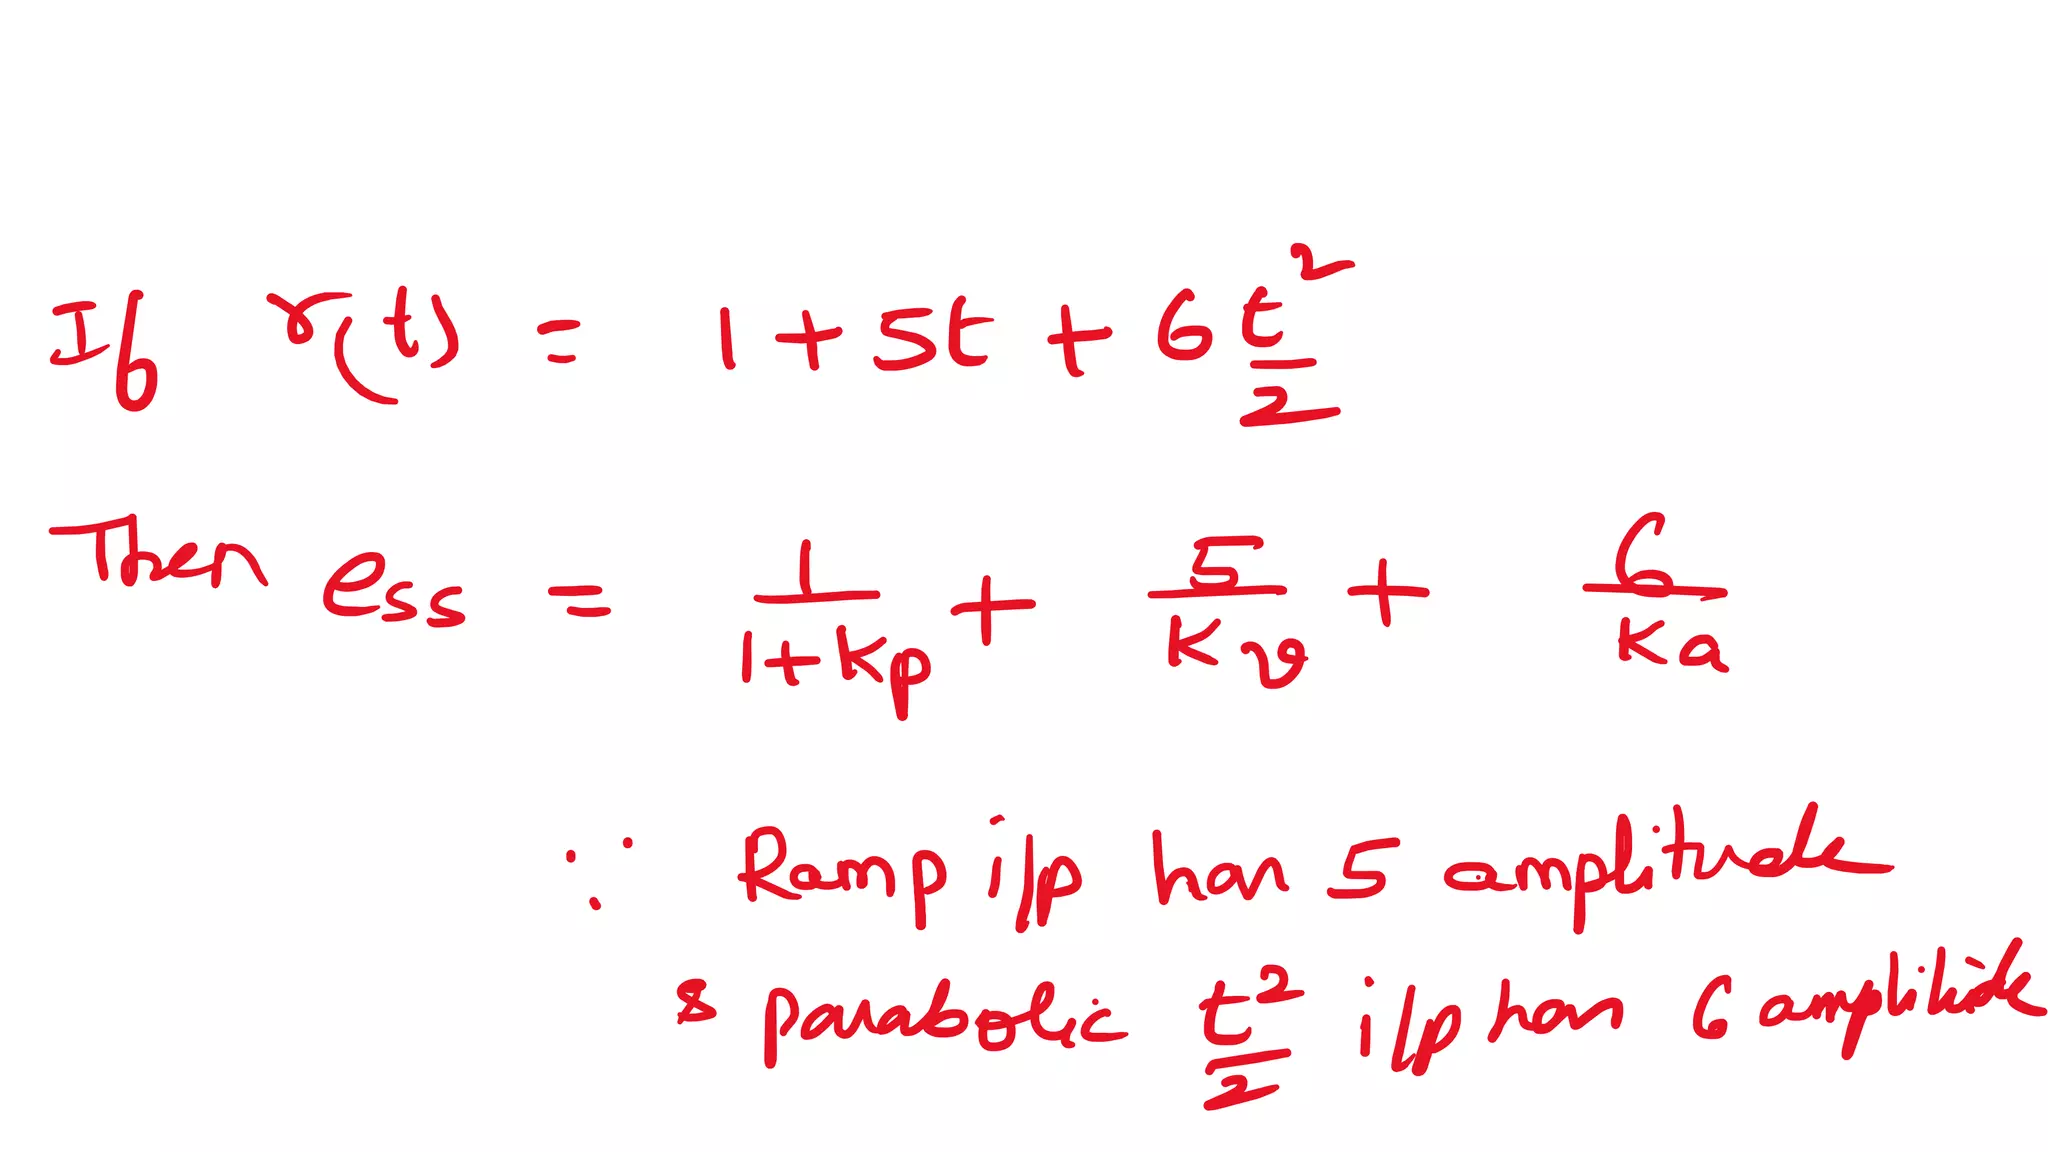 If r(t) = 1 + 5t + 6 t²/2
Then ess = 1/(1+kp) + 5/kv + 6/ka
∵ Ramp i/p has 5 amplitude
& parabolic t²/2 i/p has 6 amplitude